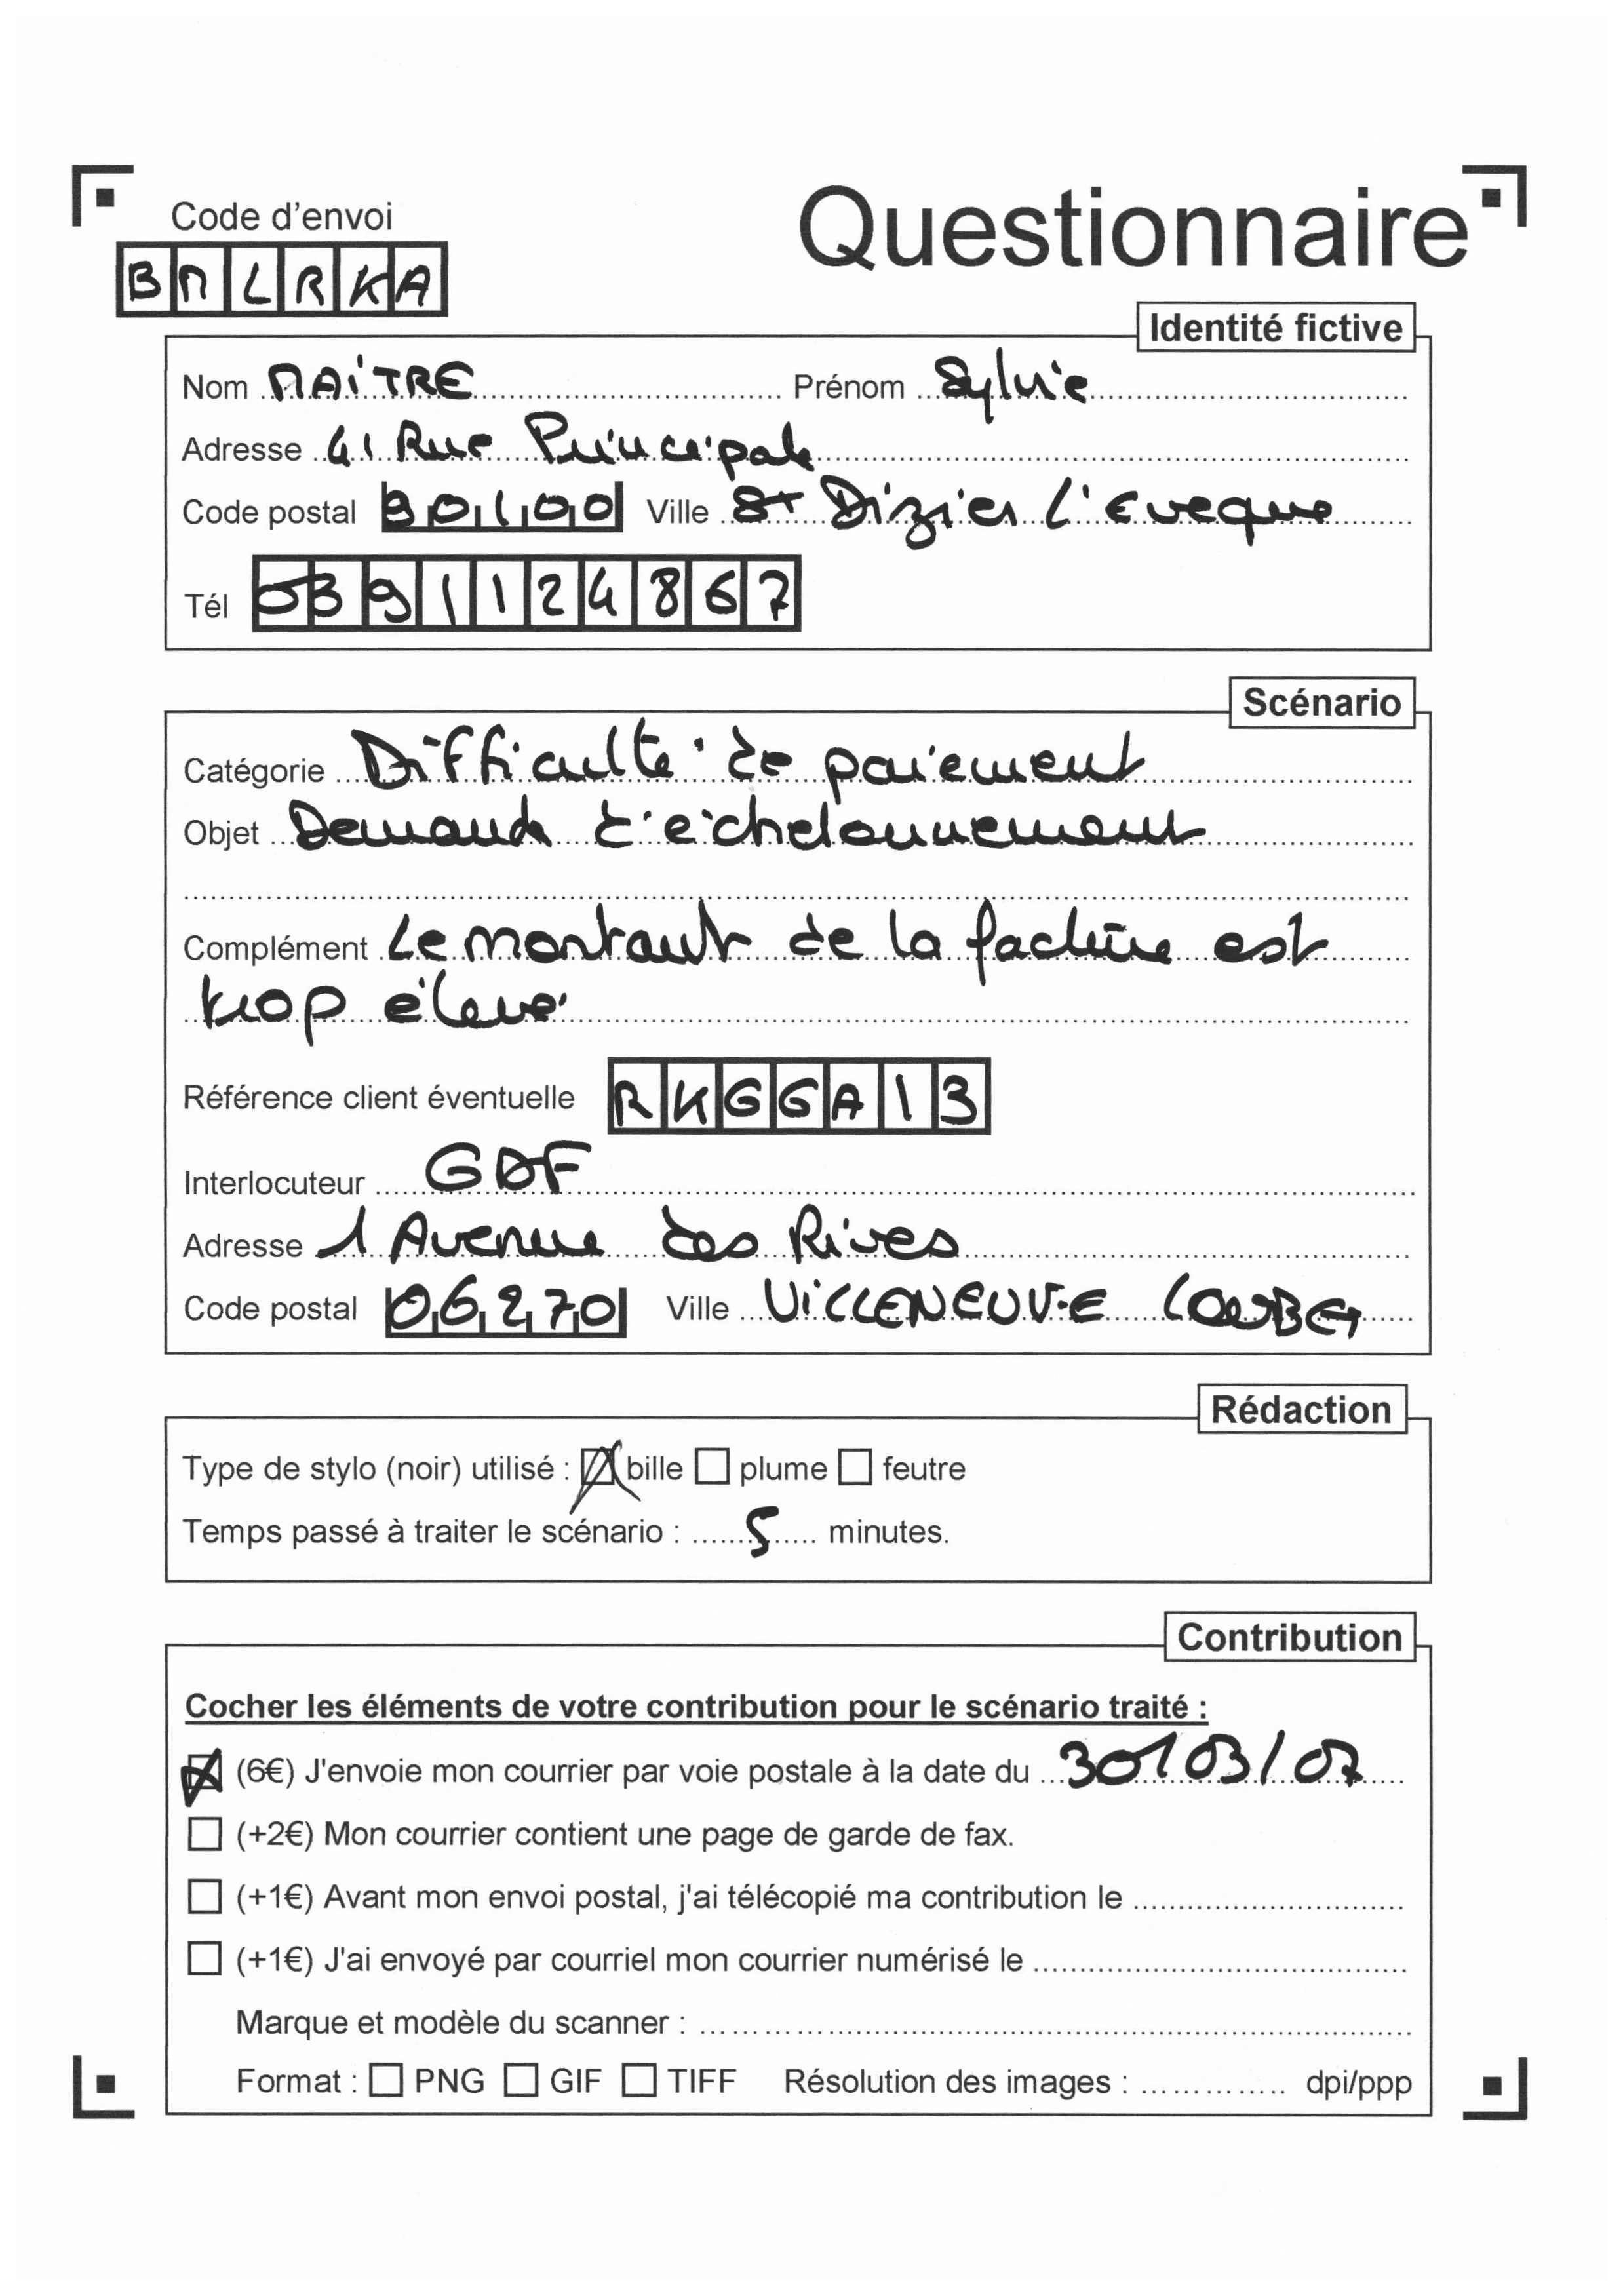 Code d'envoi
Questionnaire
BMLRKA
Identité fictive
Nom MAÎTRE Prénom Sylvie
Adresse 41 Rue Principale
Code postal 90100 Ville St Dizier l'Eveque
Tél 0391124867
Scénario
Catégorie Difficulté de paiement
Objet Demande d'échelonnement
Complément Le montant de la facture est
trop élevé
Référence client éventuelle RKGGA13
Interlocuteur GDF
Adresse 1 Avenue des Rives
Code postal 06270 Ville VILLENEUVE LOUBET
Rédaction
Type de stylo (noir) utilisé : bille plume feutre
Temps passé à traiter le scénario : 5 minutes.
Contribution
Cocher les éléments de votre contribution pour le scénario traité :
(6€) J'envoie mon courrier par voie postale à la date du 30/03/07
(+2€) Mon courrier contient une page de garde de fax.
(+1€) Avant mon envoi postal, j'ai télécopié ma contribution le
(+1€) J'ai envoyé par courriel mon courrier numérisé le
Marque et modèle du scanner :
Format : PNG GIF TIFF Résolution des images : dpi/ppp